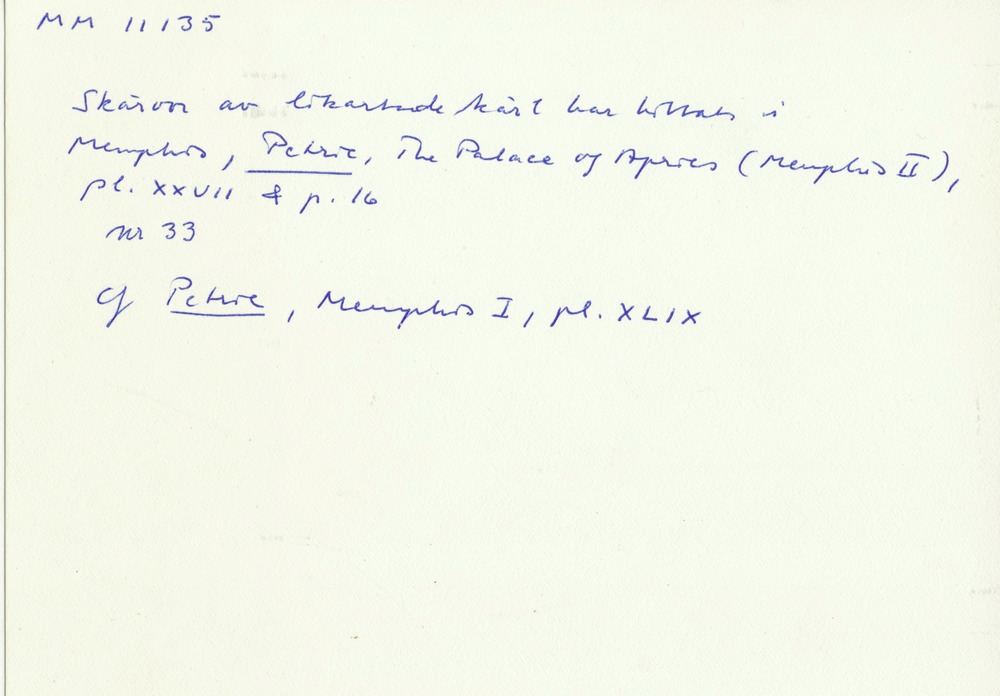 MM 11135
Skärvor av likartade kärl har hittats i
Memphis, Petrie, The Palace of Apries (Memphis II),
pl. XXVII & p. 16
nr 33
Cf Petrie, Memphis I, pl. XLIX